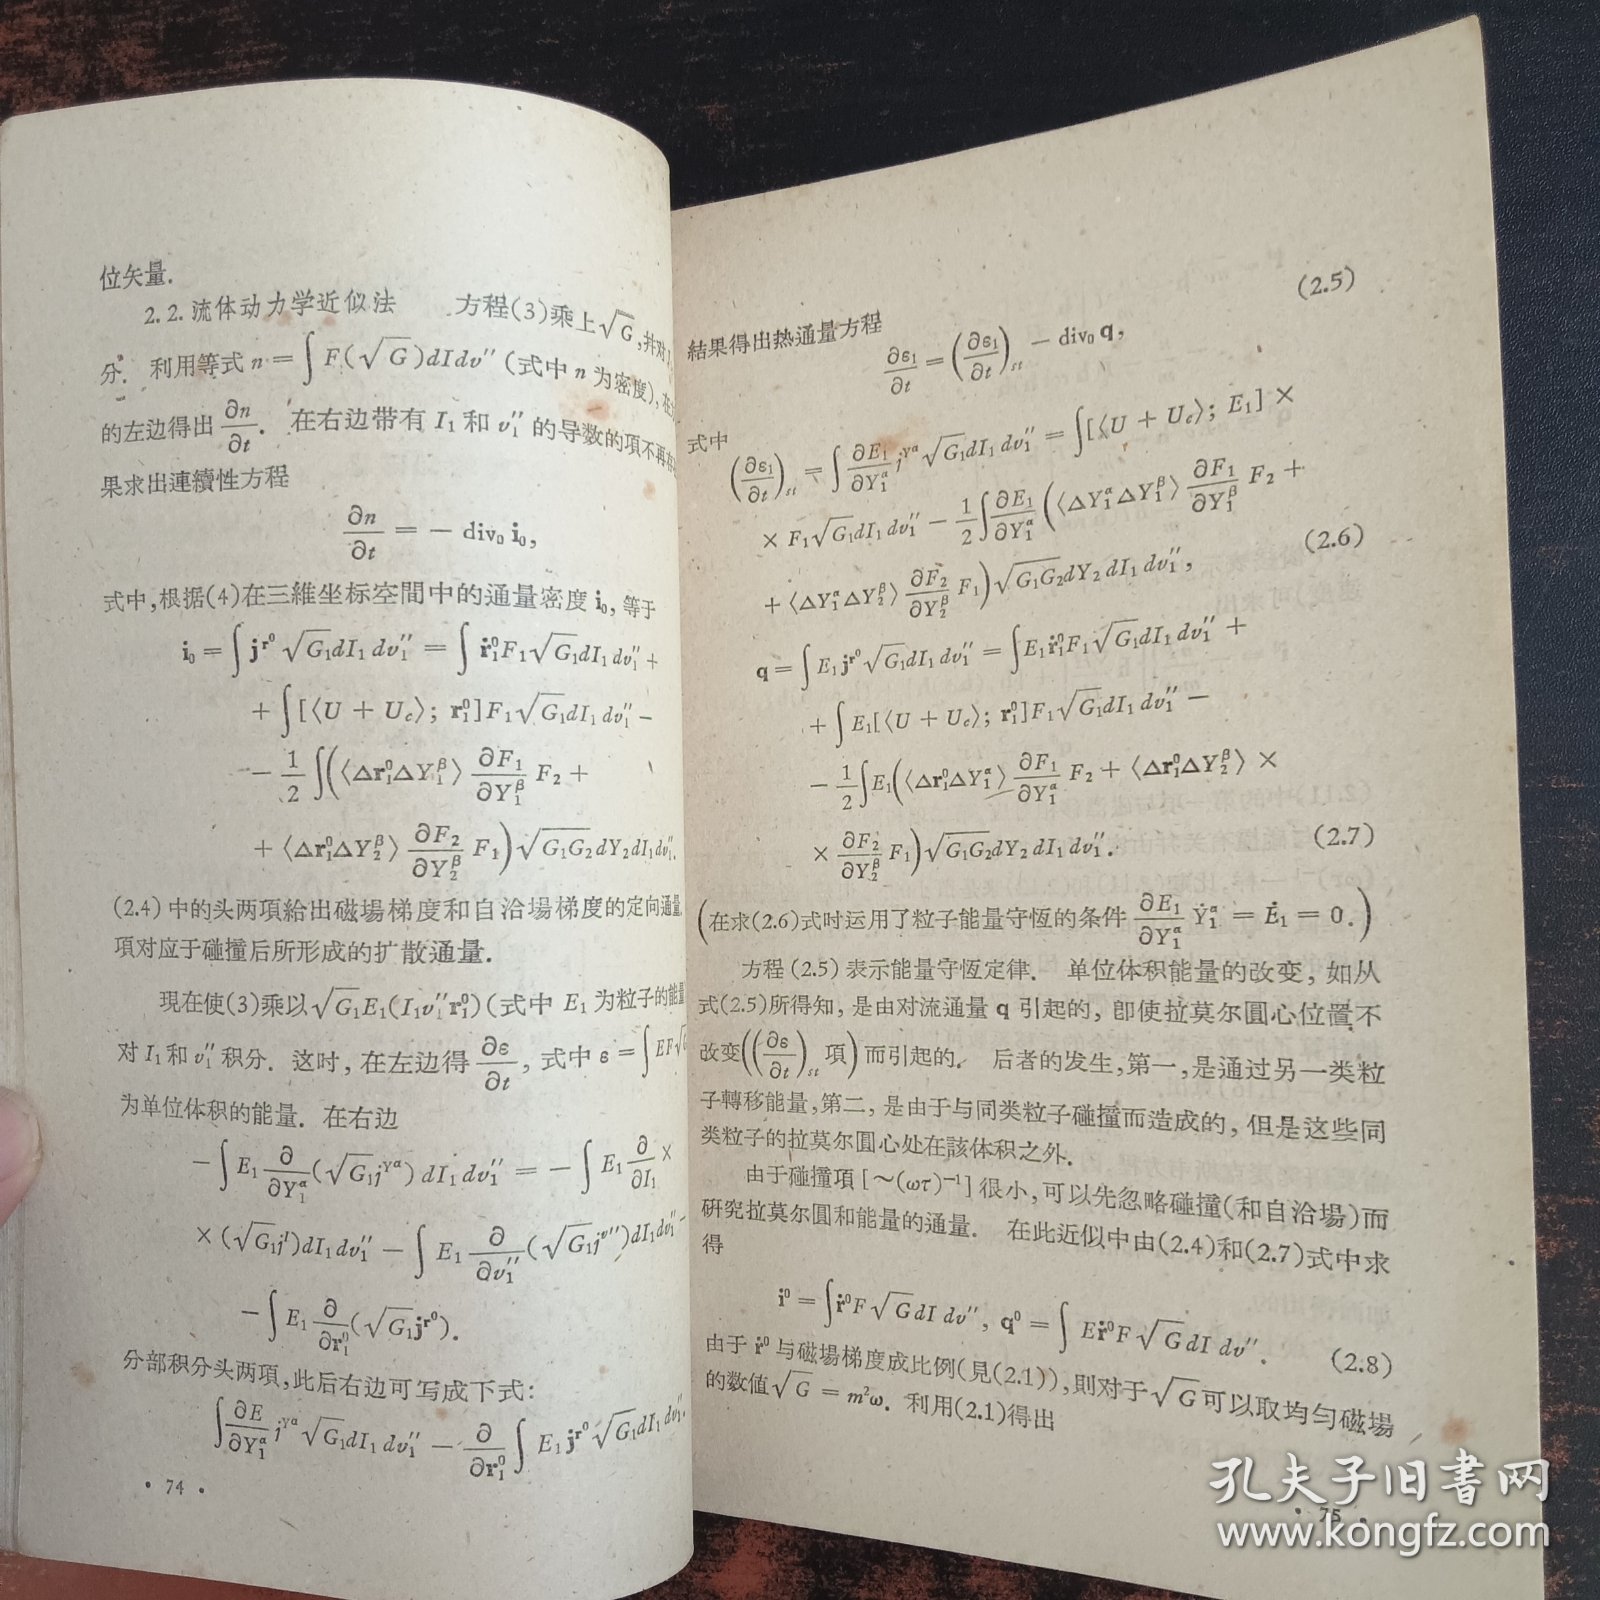 位矢量.
2.2. 流体动力学近似法 方程(3)乘上 √G, 并对
分. 利用等式 n = ∫ F(√G)dIdv″ (式中 n 为密度),
的左边得出 ∂n/∂t. 在右边带有 I₁ 和 v₁″ 的导数的項不再
果求出連續性方程
∂n/∂t = − div₀ i₀,
式中,根据(4)在三維坐标空間中的通量密度 i₀, 等于
i₀ = ∫ j^{r⁰} √G₁dI₁ dv₁″ = ∫ ṙ₁⁰F₁√G₁dI₁ dv₁″ +
+ ∫ [⟨U + U_c⟩; r₁⁰]F₁√G₁dI₁ dv₁″ −
− 1/2 ∫(⟨Δr₁⁰ΔY₁^β⟩ ∂F₁/∂Y₁^β F₂ +
+ ⟨Δr₁⁰ΔY₂^β⟩ ∂F₂/∂Y₂^β F₁) √G₁G₂ dY₂dI₁dv₁″.
(2.4) 中的头两項給出磁場梯度和自洽場梯度的定向通量
項对应于碰撞后所形成的扩散通量.
現在使(3)乘以 √G₁E₁(I₁v₁″r₁⁰) (式中 E₁ 为粒子的能量
对 I₁ 和 v₁″ 积分. 这时, 在左边得 ∂ε/∂t, 式中 ε = ∫ EF√
为单位体积的能量. 在右边
− ∫ E₁ ∂/∂Y₁^α (√G₁j^{Yα}) dI₁ dv₁″ = − ∫ E₁ ∂/∂I₁ ×
× (√G₁j^I)dI₁dv₁″ − ∫ E₁ ∂/∂v₁″ (√G₁j^{v″})dI₁dv₁″ −
− ∫ E₁ ∂/∂r₁⁰ (√G₁j^{r⁰}).
分部积分头两項,此后右边可写成下式:
∫ ∂E/∂Y₁^α j^{Yα} √G₁dI₁ dv₁″ − ∂/∂r₁⁰ ∫ E₁ j^{r⁰} √G₁dI₁dv₁″.
• 74 •
結果得出热通量方程
∂ε₁/∂t = (∂ε₁/∂t)_{st} − div₀ q, (2.5)
式中
(∂ε₁/∂t)_{st} = ∫ ∂E₁/∂Y₁^α j^{Yα} √G₁dI₁ dv₁″ = ∫[⟨U + U_c⟩; E₁] ×
× F₁√G₁dI₁ dv₁″ − 1/2 ∫ ∂E₁/∂Y₁^α (⟨ΔY₁^αΔY₁^β⟩ ∂F₁/∂Y₁^β F₂ +
+ ⟨ΔY₁^αΔY₂^β⟩ ∂F₂/∂Y₂^β F₁) √G₁G₂dY₂ dI₁ dv₁″, (2.6)
q = ∫ E₁ j^{r⁰} √G₁dI₁ dv₁″ = ∫E₁ṙ₁⁰F₁√G₁dI₁ dv₁″ +
+ ∫ E₁[⟨U + U_c⟩; r₁⁰]F₁√G₁dI₁ dv₁″ −
− 1/2 ∫E₁(⟨Δr₁⁰ΔY₁^α⟩ ∂F₁/∂Y₁^α F₂ + ⟨Δr₁⁰ΔY₂^β⟩ ×
× ∂F₂/∂Y₂^β F₁)√G₁G₂dY₂ dI₁ dv₁″. (2.7)
(在求(2.6)式时运用了粒子能量守恆的条件 ∂E₁/∂Y₁^α Ẏ₁^α = Ė₁ = 0.)
方程 (2.5) 表示能量守恆定律. 单位体积能量的改变, 如从
式(2.5)所得知, 是由对流通量 q 引起的, 卽使拉莫尔圓心位置不
改变((∂ε/∂t)_{st} 項)而引起的. 后者的发生,第一,是通过另一类粒
子轉移能量,第二, 是由于与同类粒子碰撞而造成的, 但是这些同
类粒子的拉莫尔圓心处在該体积之外.
由于碰撞項 [~(ωτ)⁻¹] 很小,可以先忽略碰撞(和自洽場)而
硏究拉莫尔圓和能量的通量. 在此近似中由(2.4)和(2.7)式中求
得
i⁰ = ∫ṙ⁰F √G dI dv″, q⁰ = ∫ Eṙ⁰F √G dI dv″. (2.8)
由于 ṙ⁰ 与磁場梯度成比例(見(2.1)),則对于 √G 可以取均匀磁場
的数值 √G = m²ω. 利用(2.1)得出
• 75 •
孔夫子旧书网
www.kongfz.com